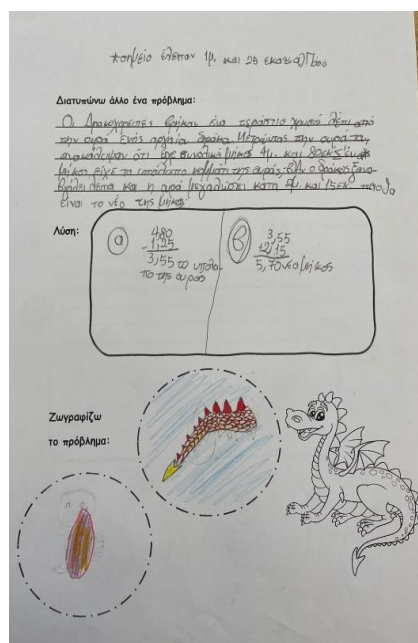 *σημείο έλειπαν 1μ. και 25 εκ. από
Διατυπώνω άλλο ένα πρόβλημα:
Οι Δρακοχαρείτες βρήκαν ένα τεράστιο χρυσό λέπι από
την ουρά ενός αρχαίου δράκο. Μετρώντας την ουρά του,
ανακάλυψαν ότι είχε συνολικό μήκος 4μ. και 80εκ. Σ' ένα*
μήκος είχε το υπόλοιπο κομμάτι της ουράς; Εάν ο δράκος ξανα-
βγάλει λέπια και η ουρά μεγαλώσει κατά 2μ. και 15εκ. ποιο θα
είναι το νέο της μήκος;
Λύση:
α 4,80
- 1,25
3,55 το υπόλοι-
πο της ουράς
β 3,55
+2,15
5,70 νέο μήκος
Ζωγραφίζω
το πρόβλημα: